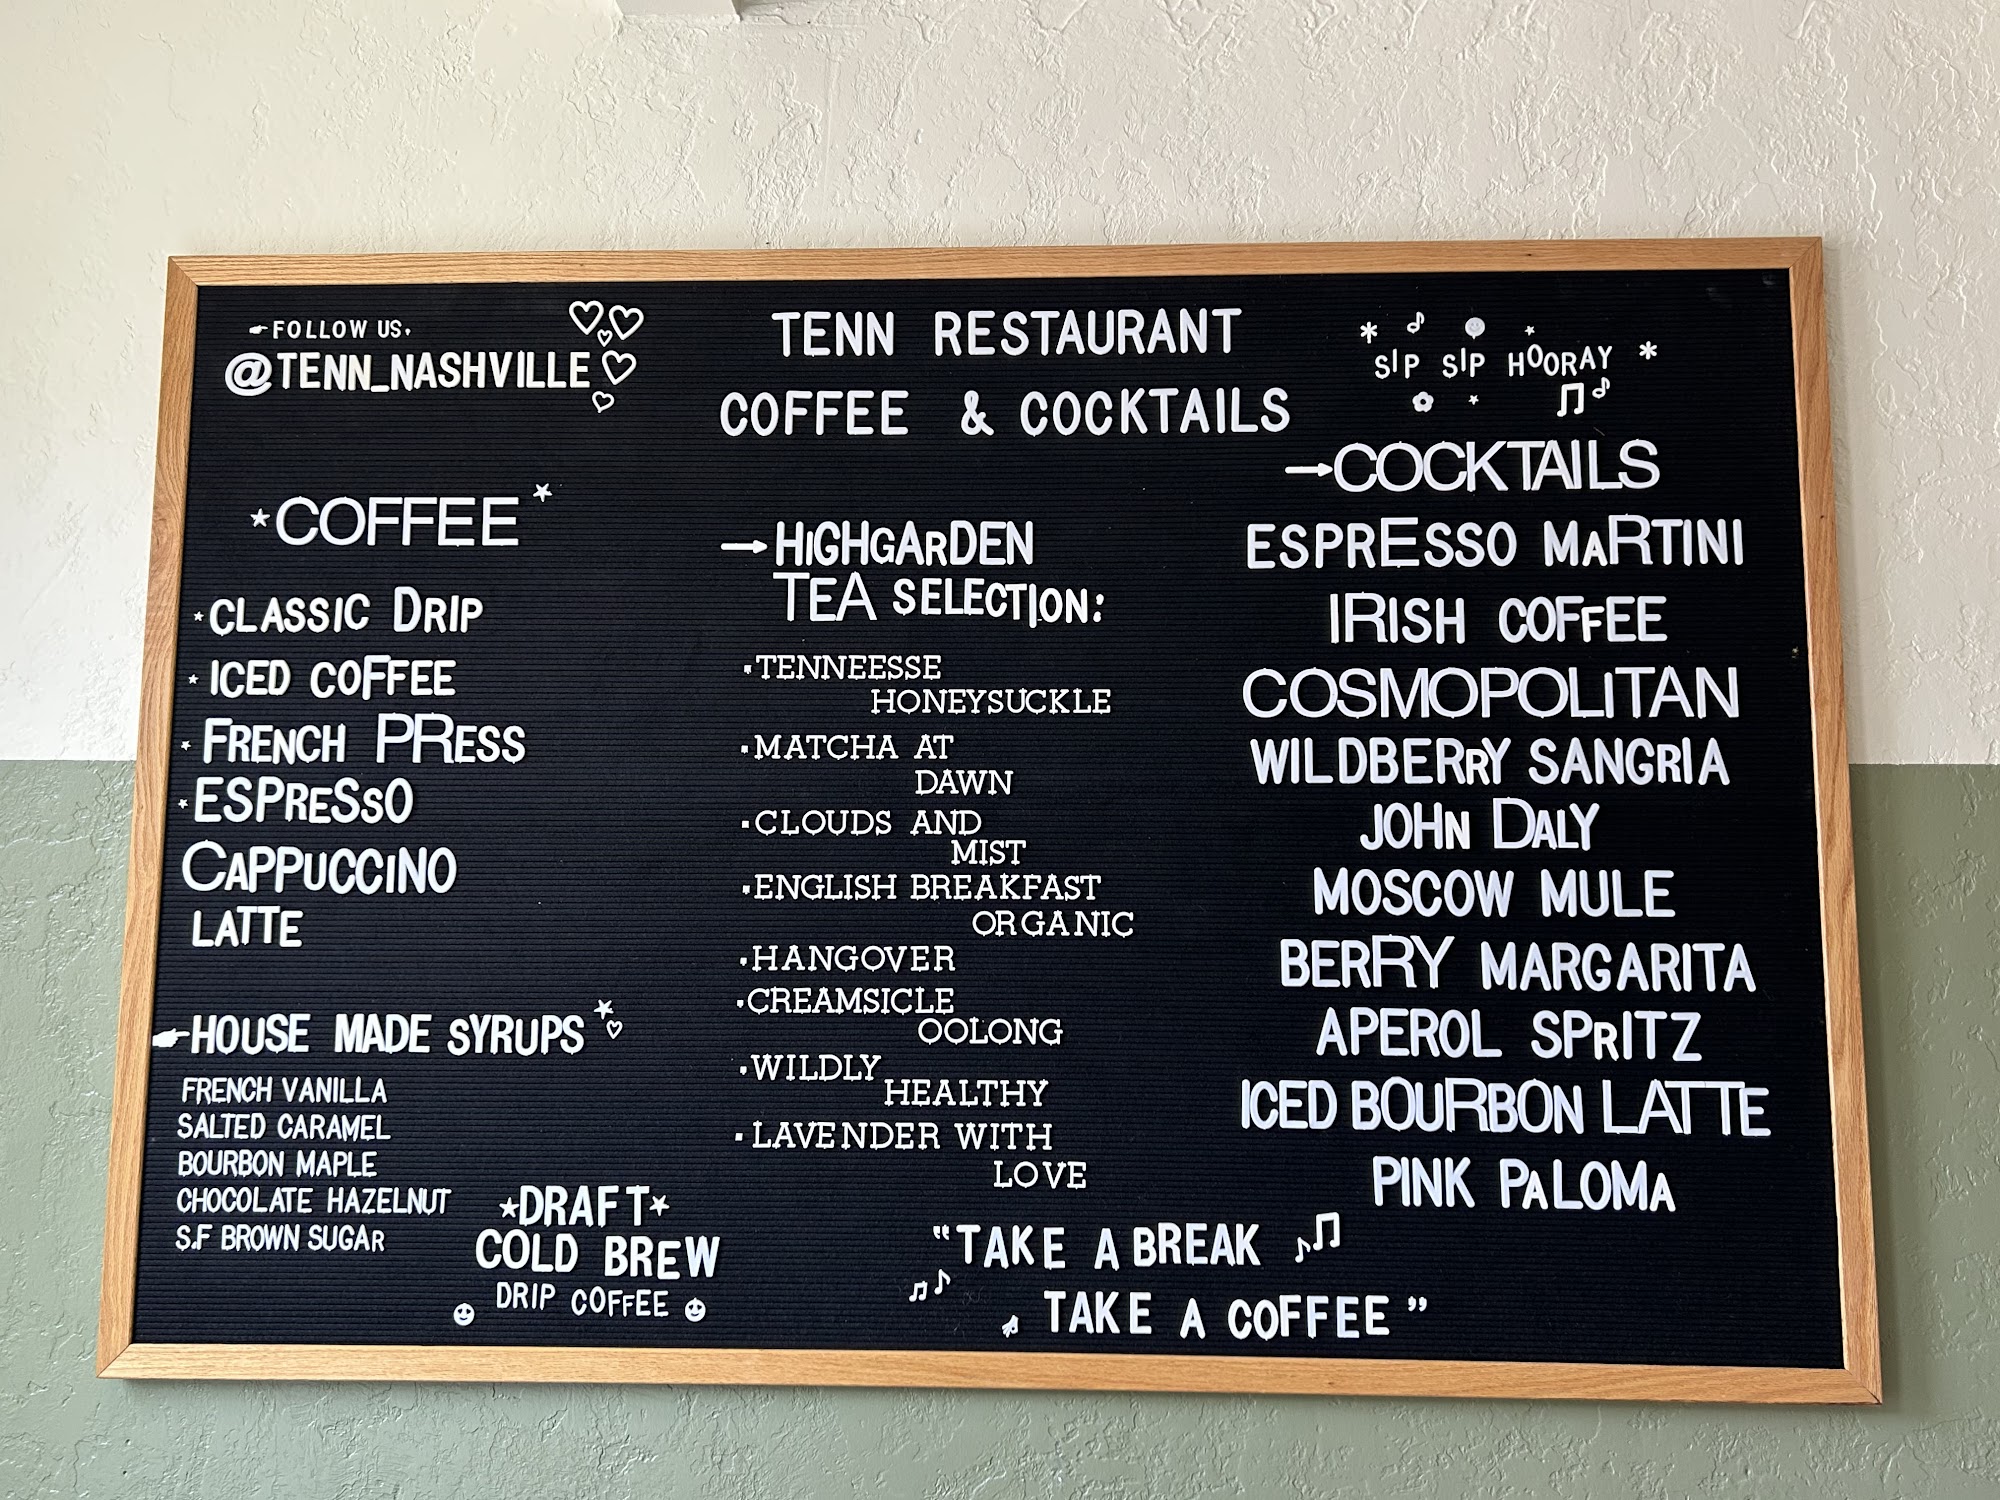 FOLLOW US,
@TENN_NASHVILLE
TENN RESTAURANT
COFFEE & COCKTAILS
SIP SIP HOORAY
*COFFEE*
CLASSIC DRIP
ICED COFFEE
FRENCH PRESS
ESPRESSO
CAPPUCCINO
LATTE
HOUSE MADE SYRUPS
FRENCH VANILLA
SALTED CARAMEL
BOURBON MAPLE
CHOCOLATE HAZELNUT
S.F BROWN SUGAR
*DRAFT*
COLD BREW
DRIP COFFEE
→HIGHGARDEN
TEA SELECTION:
·TENNEESSE
HONEYSUCKLE
·MATCHA AT
DAWN
·CLOUDS AND
MIST
·ENGLISH BREAKFAST
ORGANIC
·HANGOVER
·CREAMSICLE
OOLONG
·WILDLY
HEALTHY
·LAVENDER WITH
LOVE
→COCKTAILS
ESPRESSO MARTINI
IRISH COFFEE
COSMOPOLITAN
WILDBERRY SANGRIA
JOHN DALY
MOSCOW MULE
BERRY MARGARITA
APEROL SPRITZ
ICED BOURBON LATTE
PINK PALOMA
"TAKE A BREAK
TAKE A COFFEE"